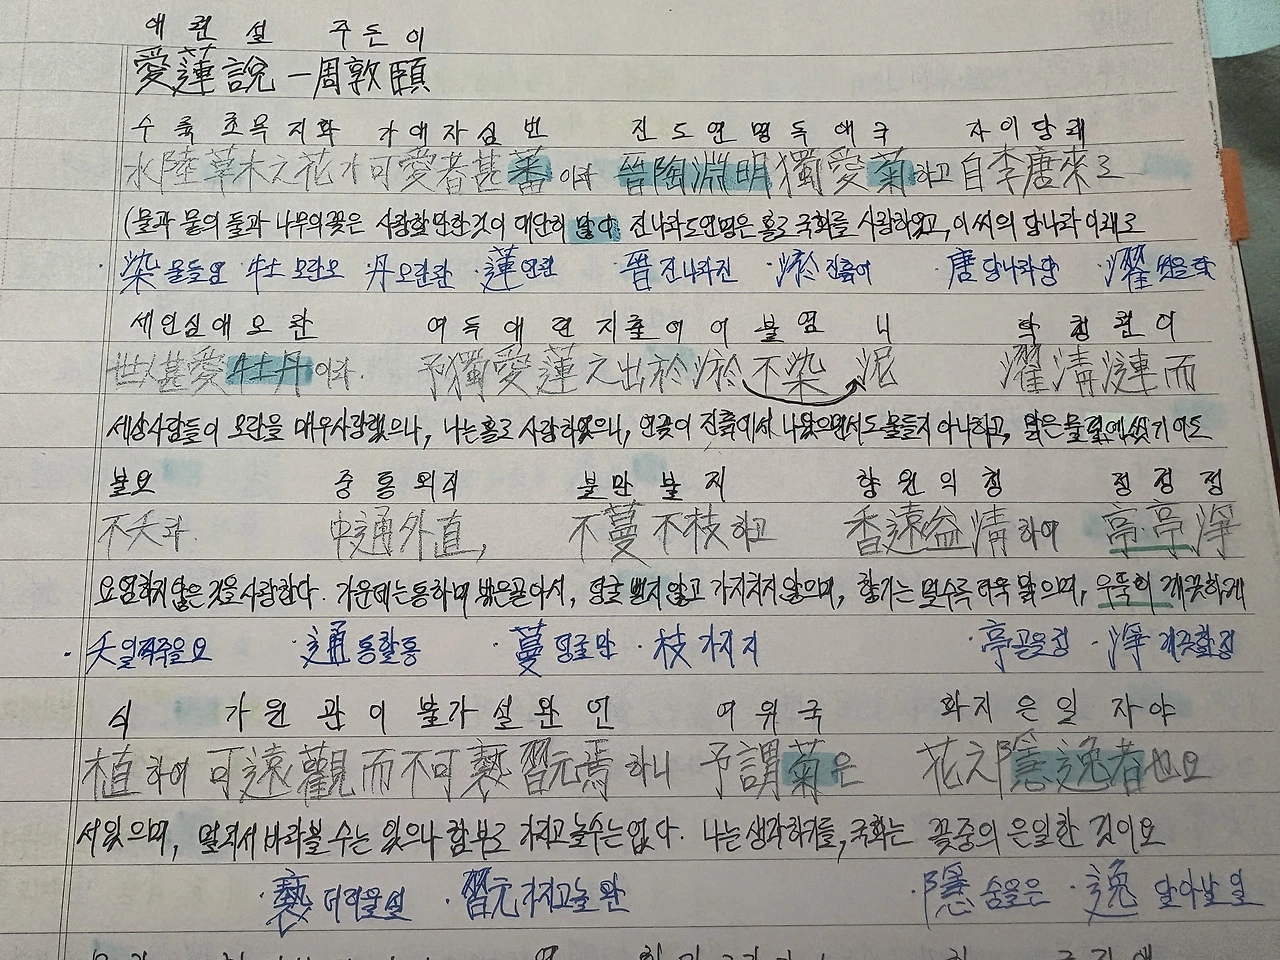 애련설 주돈이
愛蓮說 - 周敦頤
수륙초목지화 가애자심번 진도연명독애국 자이당래
水陸草木之花 可愛者甚蕃이라 晉陶淵明獨愛菊하고 自李唐來로
(물과 뭍의 풀과 나무의 꽃은 사랑할만한 것이 대단히 많다. 진나라 도연명은 홀로 국화를 사랑하였고, 이씨의 당나라 이래로
·染 물들염 ·牡 모란모 丹 모란란 ·蓮 연련 ·晉 진나라진 ·淤 진흙어 ·唐 당나라당 ·濯 씻을탁
세인심애모란 여독애련지출어어불염 니 탁청련이
世人甚愛牡丹이라. 予獨愛蓮之出於淤不染泥 濯淸漣而
세상사람들이 모란을 매우사랑했으나, 나는 홀로 사랑하였으니, 연꽃이 진흙에서 나왔으면서도 물들지 아니하고, 맑은물결에 씻기어도
불요 중통외직 불만불지 향원익청 정정정
不夭라. 中通外直, 不蔓不枝하고 香遠益淸하여 亭亭淨
요염하지 않은 것을 사랑한다. 가운데는 통하며 밖은 곧아서, 덩굴 뻗지 않고 가지치지 않으며, 향기는 멀수록 더욱 맑으며, 우뚝히 깨끗하게
·夭 일찍죽을요 ·通 통할통 ·蔓 덩굴만 ·枝 가지지 ·亭 곧을정 ·淨 깨끗할정
식 가원관이불가설완언 여위국 화지은일자야
植하여 可遠觀而不可褻翫焉하니 予謂菊은 花之隱逸者也요
서있으며, 멀리서 바라볼 수는 있으나 함부로 가지고 놀수는 없다. 나는 생각하기를, 국화는 꽃중의 은일한 것이오
·褻 더러울설 ·翫 가지고놀완 ·隱 숨을은 ·逸 달아날일